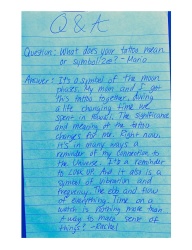 Q & A
Question: What does your tattoo mean
or symbolize? - Maria
Answer: It's a symbol of the moon
phases. My mom and I got
this tattoo together, during
a life changing time we
spent in Hawaii. The significance
and meaning of the tattoo
changes for me. Right now,
it's in many ways a
reminder of my connection to
the Universe. It's a reminder
to look up. And it also is a
symbol of vibration and
frequency. The ebb and flow
of everything. Time on a
word is nothing more than
a way to make sense of
things! - Rachel